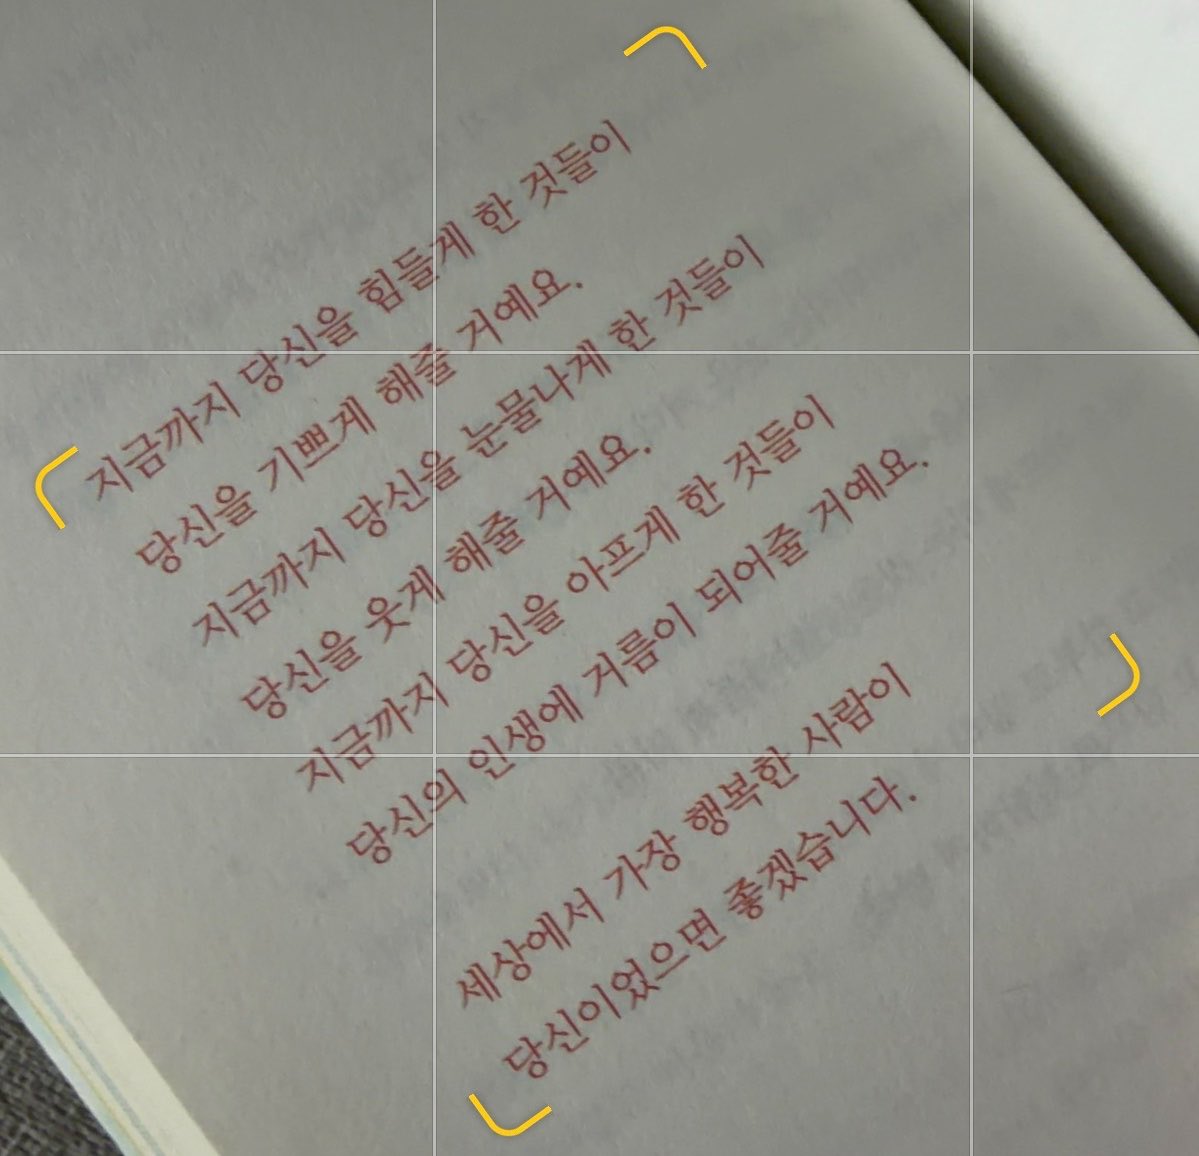 지금까지 당신을 힘들게 한 것들이
당신을 기쁘게 해줄 거예요.
지금까지 당신을 눈물나게 한 것들이
당신을 웃게 해줄 거예요.
지금까지 당신을 아프게 한 것들이
당신의 인생에 거름이 되어줄 거예요.
세상에서 가장 행복한 사람이
당신이었으면 좋겠습니다.